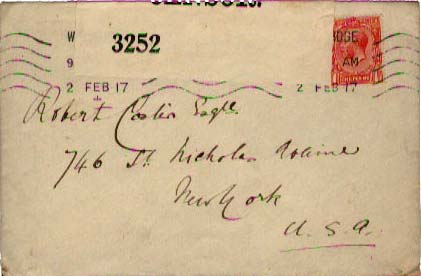 CENSOR.
3252
W
9
2 FEB 17
DGE
AM
2 FEB 17
Robert Esqre
746 St. Nicholas Avenue
New York
U.S.A.